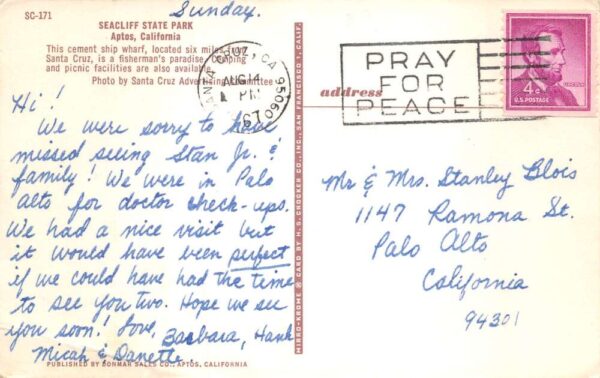 SC-171
Sunday.
SEACLIFF STATE PARK
Aptos, California
This cement ship wharf, located six miles from
Santa Cruz, is a fisherman's paradise. Camping
and picnic facilities are also available.
Photo by Santa Cruz Advertising Committee
Hi!
We were sorry to have
missed seeing Stan Jr. &
family! We were in Palo
Alto for doctor check-ups.
We had a nice visit but
it would have been perfect
if we could have had the time
to see you two. Hope we see
you soon! Love, Barbara, Hank
Micah & Danette.
PUBLISHED BY BONMAR SALES CO., APTOS, CALIFORNIA
MIRRO-KROME ® CARD BY H. S. CROCKER CO., INC., SAN FRANCISCO 1, CALIF.
SANTA CRUZ, CA 95060
AUG 14
PM
PRAY
FOR
PEACE
4¢
LINCOLN
U.S. POSTAGE
address
Mr & Mrs. Stanley Blois
1147 Ramona St.
Palo Alto
California
94301